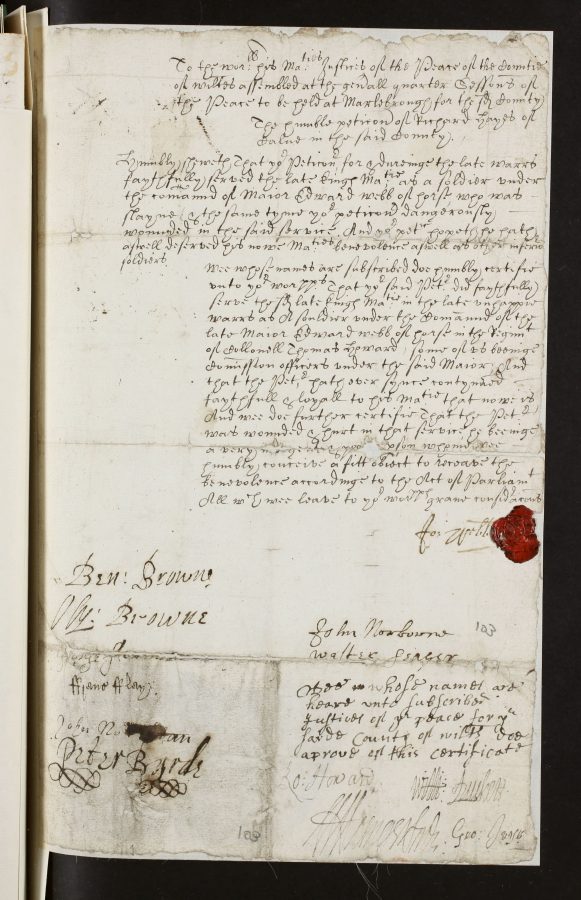 To the wor:ll his Maties Justices of the Peace of the Countie
of wiltes assembled at the gen̄all quarter Sessons of
the Peace to be held at Marlebrough for the sd County
The humble peticon of Richard Hayes of
Calne in the said County.
Humbly sheweth That yor Peticonr for & dureinge the late warrs
faythfully served the late kingh Matie as a soldier under
the comand of Maior Edward webb of horse who was
slayne, & the same tyme yor peticonr dangerously
wounded in the said service, And yor petr hopeth he hath
aswell deserved his nowe Maties benevolence aswell as other inferior
soldiers
Wee whose names are subscribed doe humbly certifie
unto yor worpps That yor said Petr did faythfully
serve the sd late kingh Matie in the late unhappie
warrs as A souldier under the Comannd of the
late Maior Edward webb of horse in the Regimt
of Collonell Thomas Howard, some of us beeinge
Comission officers under the said Maior, And
that the Petr hath ever synce contynued
faythfull & loyall to his Matie that nowe is
And wee doe further certifie That the Petr
was wounded & hurt in that service he beeinge
a very person whome wee
humbly conceive a fitt object to receave the
benevolence accordinge to the Act of Parliamt
All wch wee leave to yor worpps grave considracons
Jo: Webb
Ben: Browne
Browne
John Norborne
103
Walter
ffrane fflay
John
Peter Byrde
Wee whose names are
heare unto subscribed
Justices of ye peace for ye
saide County of wilts doe
aprove of this certificate
Howard
Will:
Geo:
103